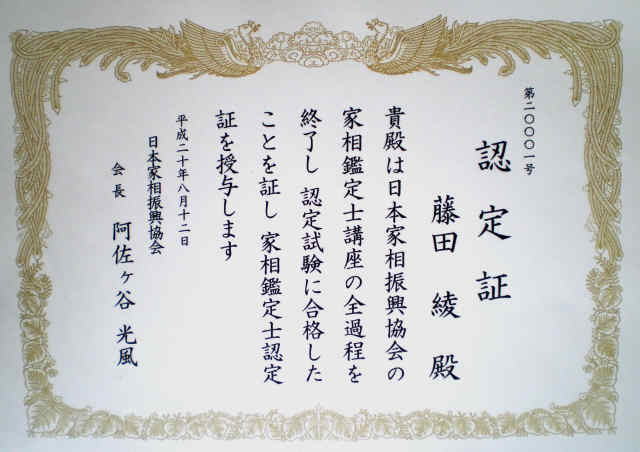 第二〇〇〇一号
認定証
藤田 綾 殿
貴殿は日本家相振興協会の
家相鑑定士講座の全過程を
終了し 認定試験に合格した
ことを証し 家相鑑定士認定
証を授与します
平成二十年八月十二日
日本家相振興協会
会長 阿佐ヶ谷 光風